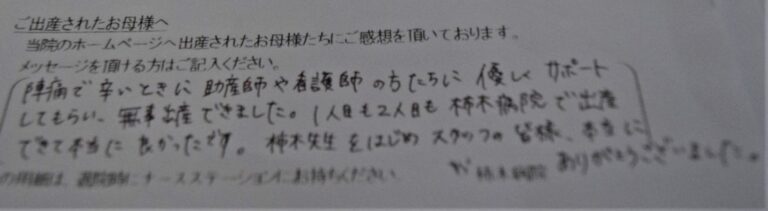 ご出産されたお母様へ
当院のホームページへ出産されたお母様たちにご感想を頂いております。
メッセージを頂ける方はご記入ください。
陣痛で辛いときに助産師や看護師の方たちに優しくサポート
してもらい、無事出産できました。1人目も2人目も柿木病院で出産
できて本当に良かったです。柿木先生をはじめスタッフの皆様、本当に
ありがとうございました。
の用紙は、退院時にナースステーションにお持ちください
柿木病院